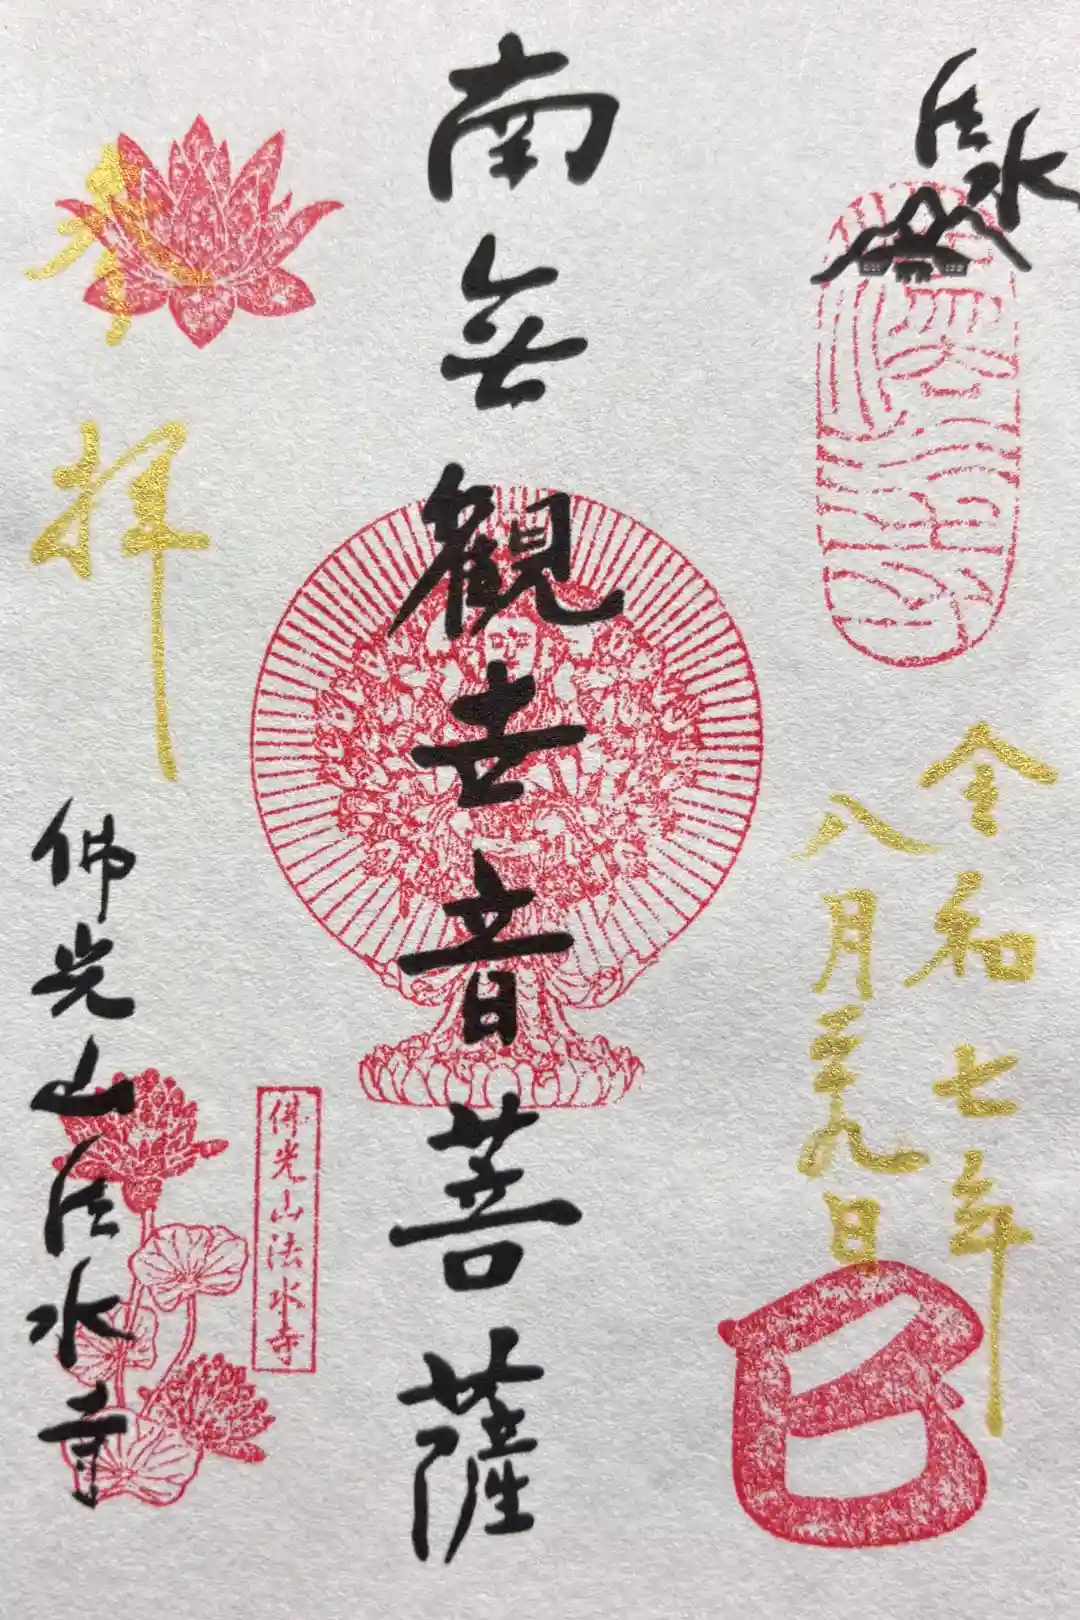 法水
令和七年
八月二十九日
南無観世音菩薩
奉拝
佛光山法水寺
佛光山法水寺